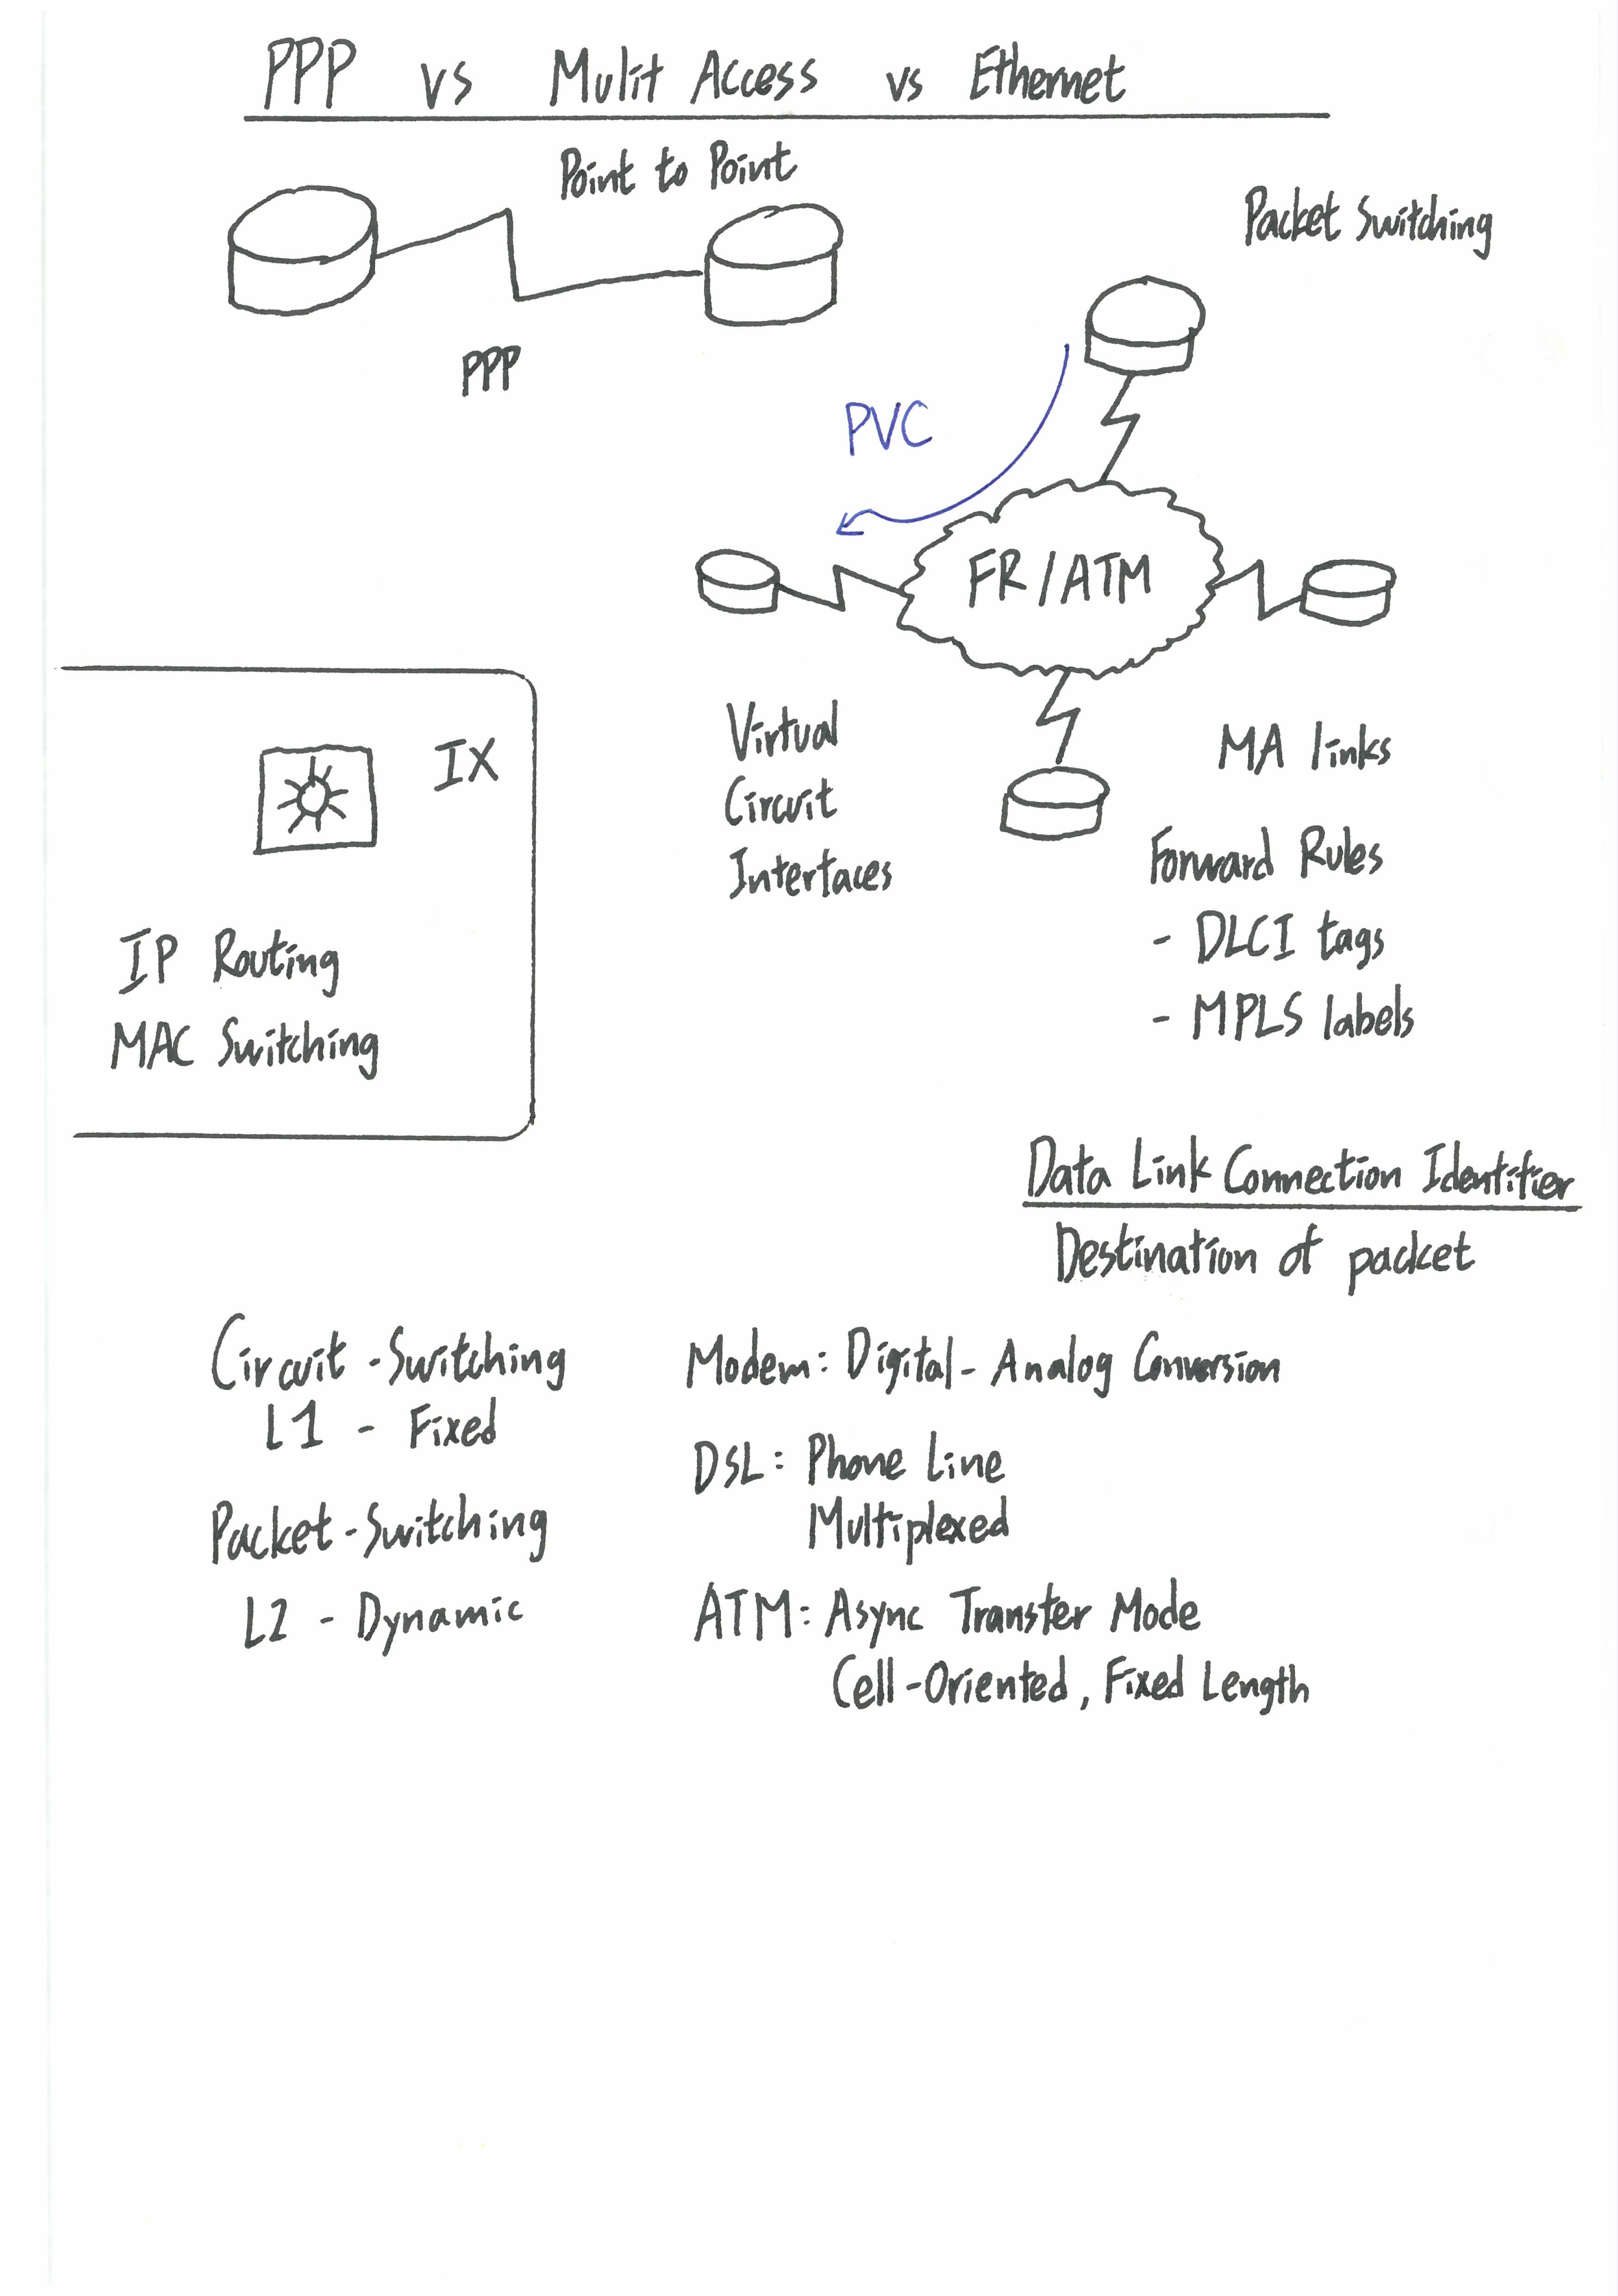 PPP vs Mulit Access vs Ethernet
Point to Point
Packet Switching
PPP
PVC
FR/ATM
IX
IP Routing
MAC Switching
Virtual
Circuit
Interfaces
MA links
Forward Rules
- DLCI tags
- MPLS labels
Data Link Connection Identifier
Destination of packet
Circuit-Switching
L1 - Fixed
Packet-Switching
L2 - Dynamic
Modem: Digital-Analog Conversion
DSL: Phone Line
Multiplexed
ATM: Async Transfer Mode
Cell-Oriented, Fixed Length